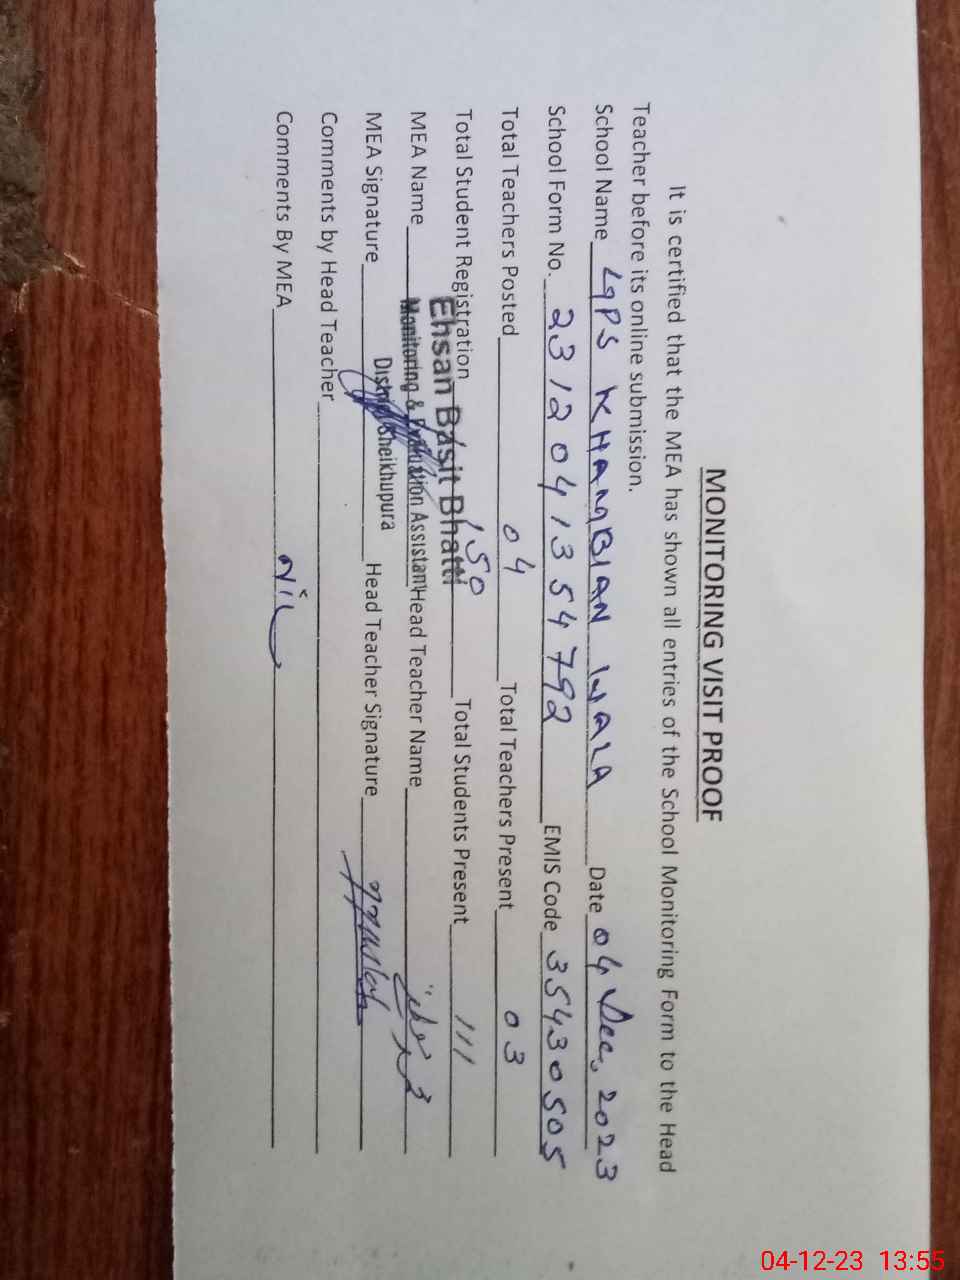 MONITORING VISIT PROOF
It is certified that the MEA has shown all entries of the School Monitoring Form to the Head
Teacher before its online submission.
School Name GPS KHANGBIAN WALA Date 04 Dec, 2023
School Form No. 231204135 4792 EMIS Code 35430505
Total Teachers Posted 04 Total Teachers Present 03
Total Student Registration 150 Total Students Present 111
Ehsan Basit Bhatti
MEA Name Monitoring & Evaluation Assistant Head Teacher Name
District Sheikhupura
MEA Signature Head Teacher Signature
Comments by Head Teacher
Comments By MEA NIL
04-12-23 13:55